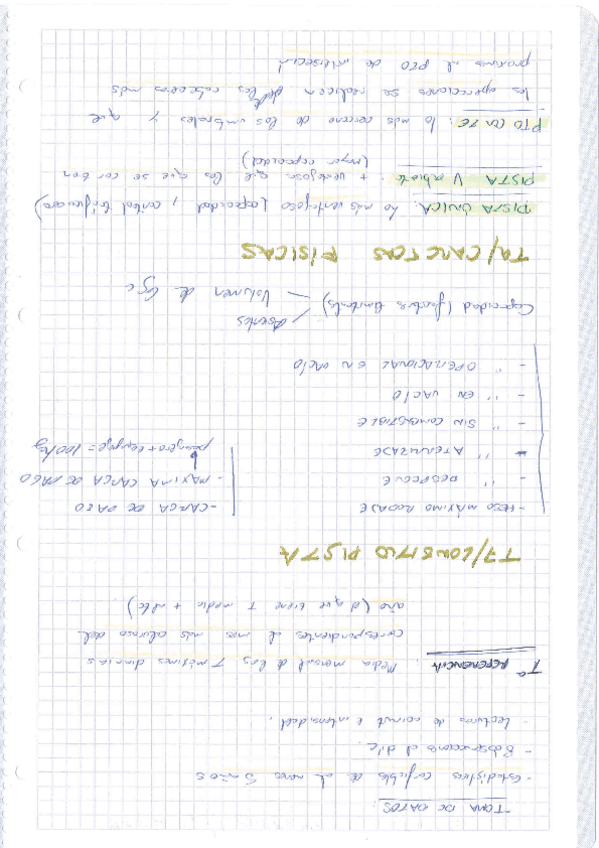 TOMA DE DATOS:
- estadísticas confiables de al menos 5 años
- 8 observaciones al día.
- lecturas de e intensidad.
Tª REFERENCIA: Media mensual de las T máximas diarias
correspondientes al mes más caluroso del
año (el que tiene T media + alta).
T7/LONGITUD PISTA
- PESO MÁXIMO RODAJE
- " DESPEGUE
- " ATERRIZAJE
- " SIN COMBUSTIBLE
- " EN VACÍO
- " OPERACIONAL EN VACÍO
- CARGA DE PAGO
- MÁXIMA CARGA DE PAGO
pasajero+equipaje = 100kg
Capacidad (factores limitantes)
Asientos
Volumen de
T8/CARCTCAS FÍSICAS
PISTA ÚNICA: lo más ventajoso (capacidad y control tráfico aéreo)
PISTA V abierta: + ventajosa que las que se cortan
(mayor capacidad)
PTO CRUCE: lo más cercano de los umbrales y que
las operaciones se realicen desde las cabeceras más
próximas al pto de intersección